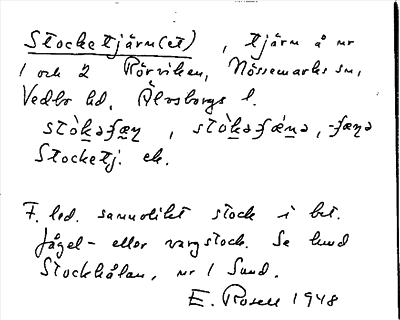 Stocketjärn(et), tjärn å nr
1 och 2 Rörviken, Nössemarks sn,
Vedbo hd, Älvsborgs l.
stòkəʃæɳ, stòkəʃǽɳə, -ʃæɳə
Stocketj. ek.
F. led. sannolikt stock i bet.
fågel- eller vargstock. Se
Stockhålan, nr 1 Sund.
E. Rosell 1948